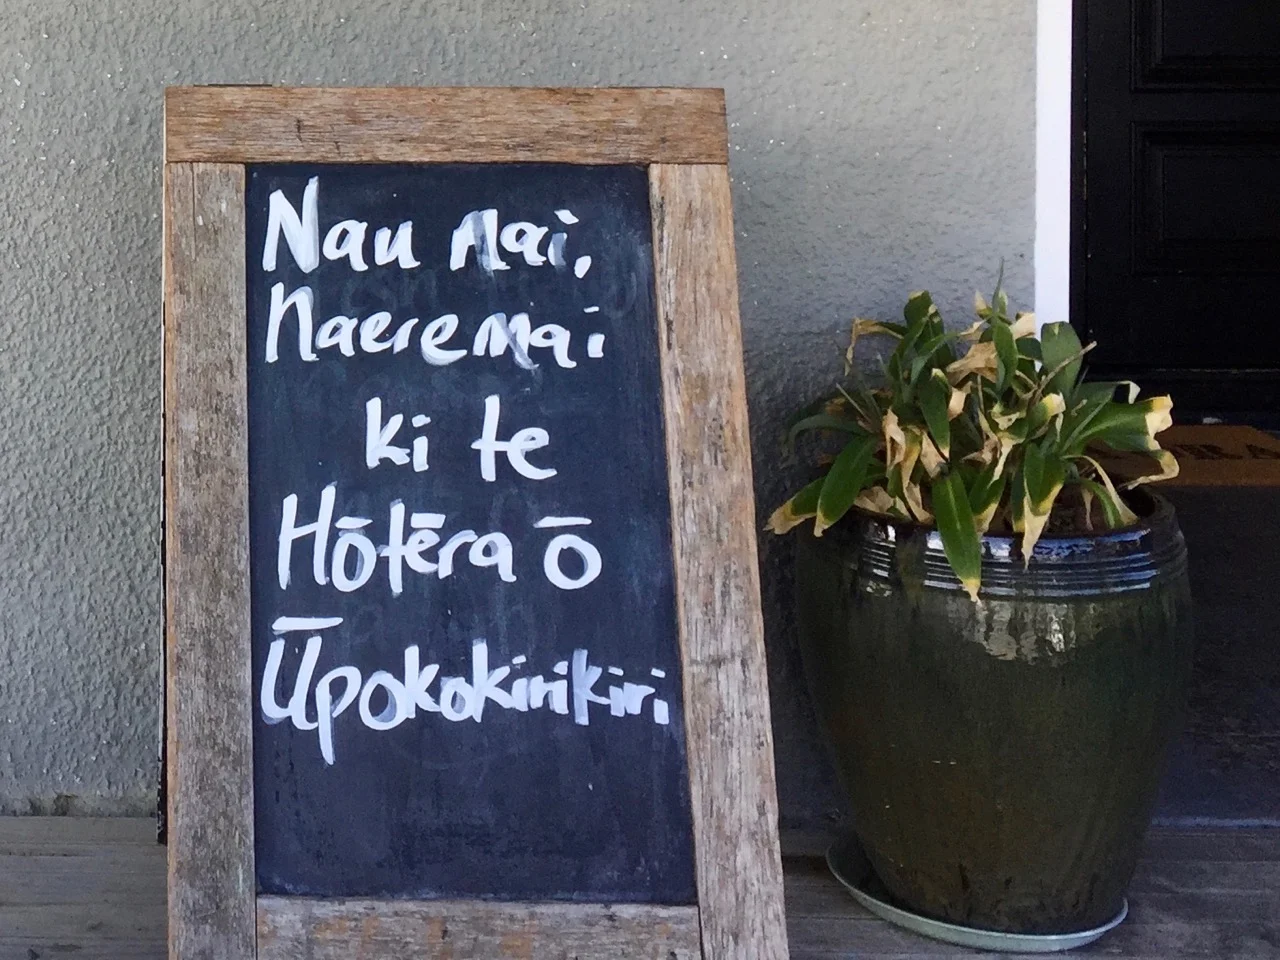 Nau Mai,
haere mai
ki te
Hōtēra ō
Ūpokokirikiri